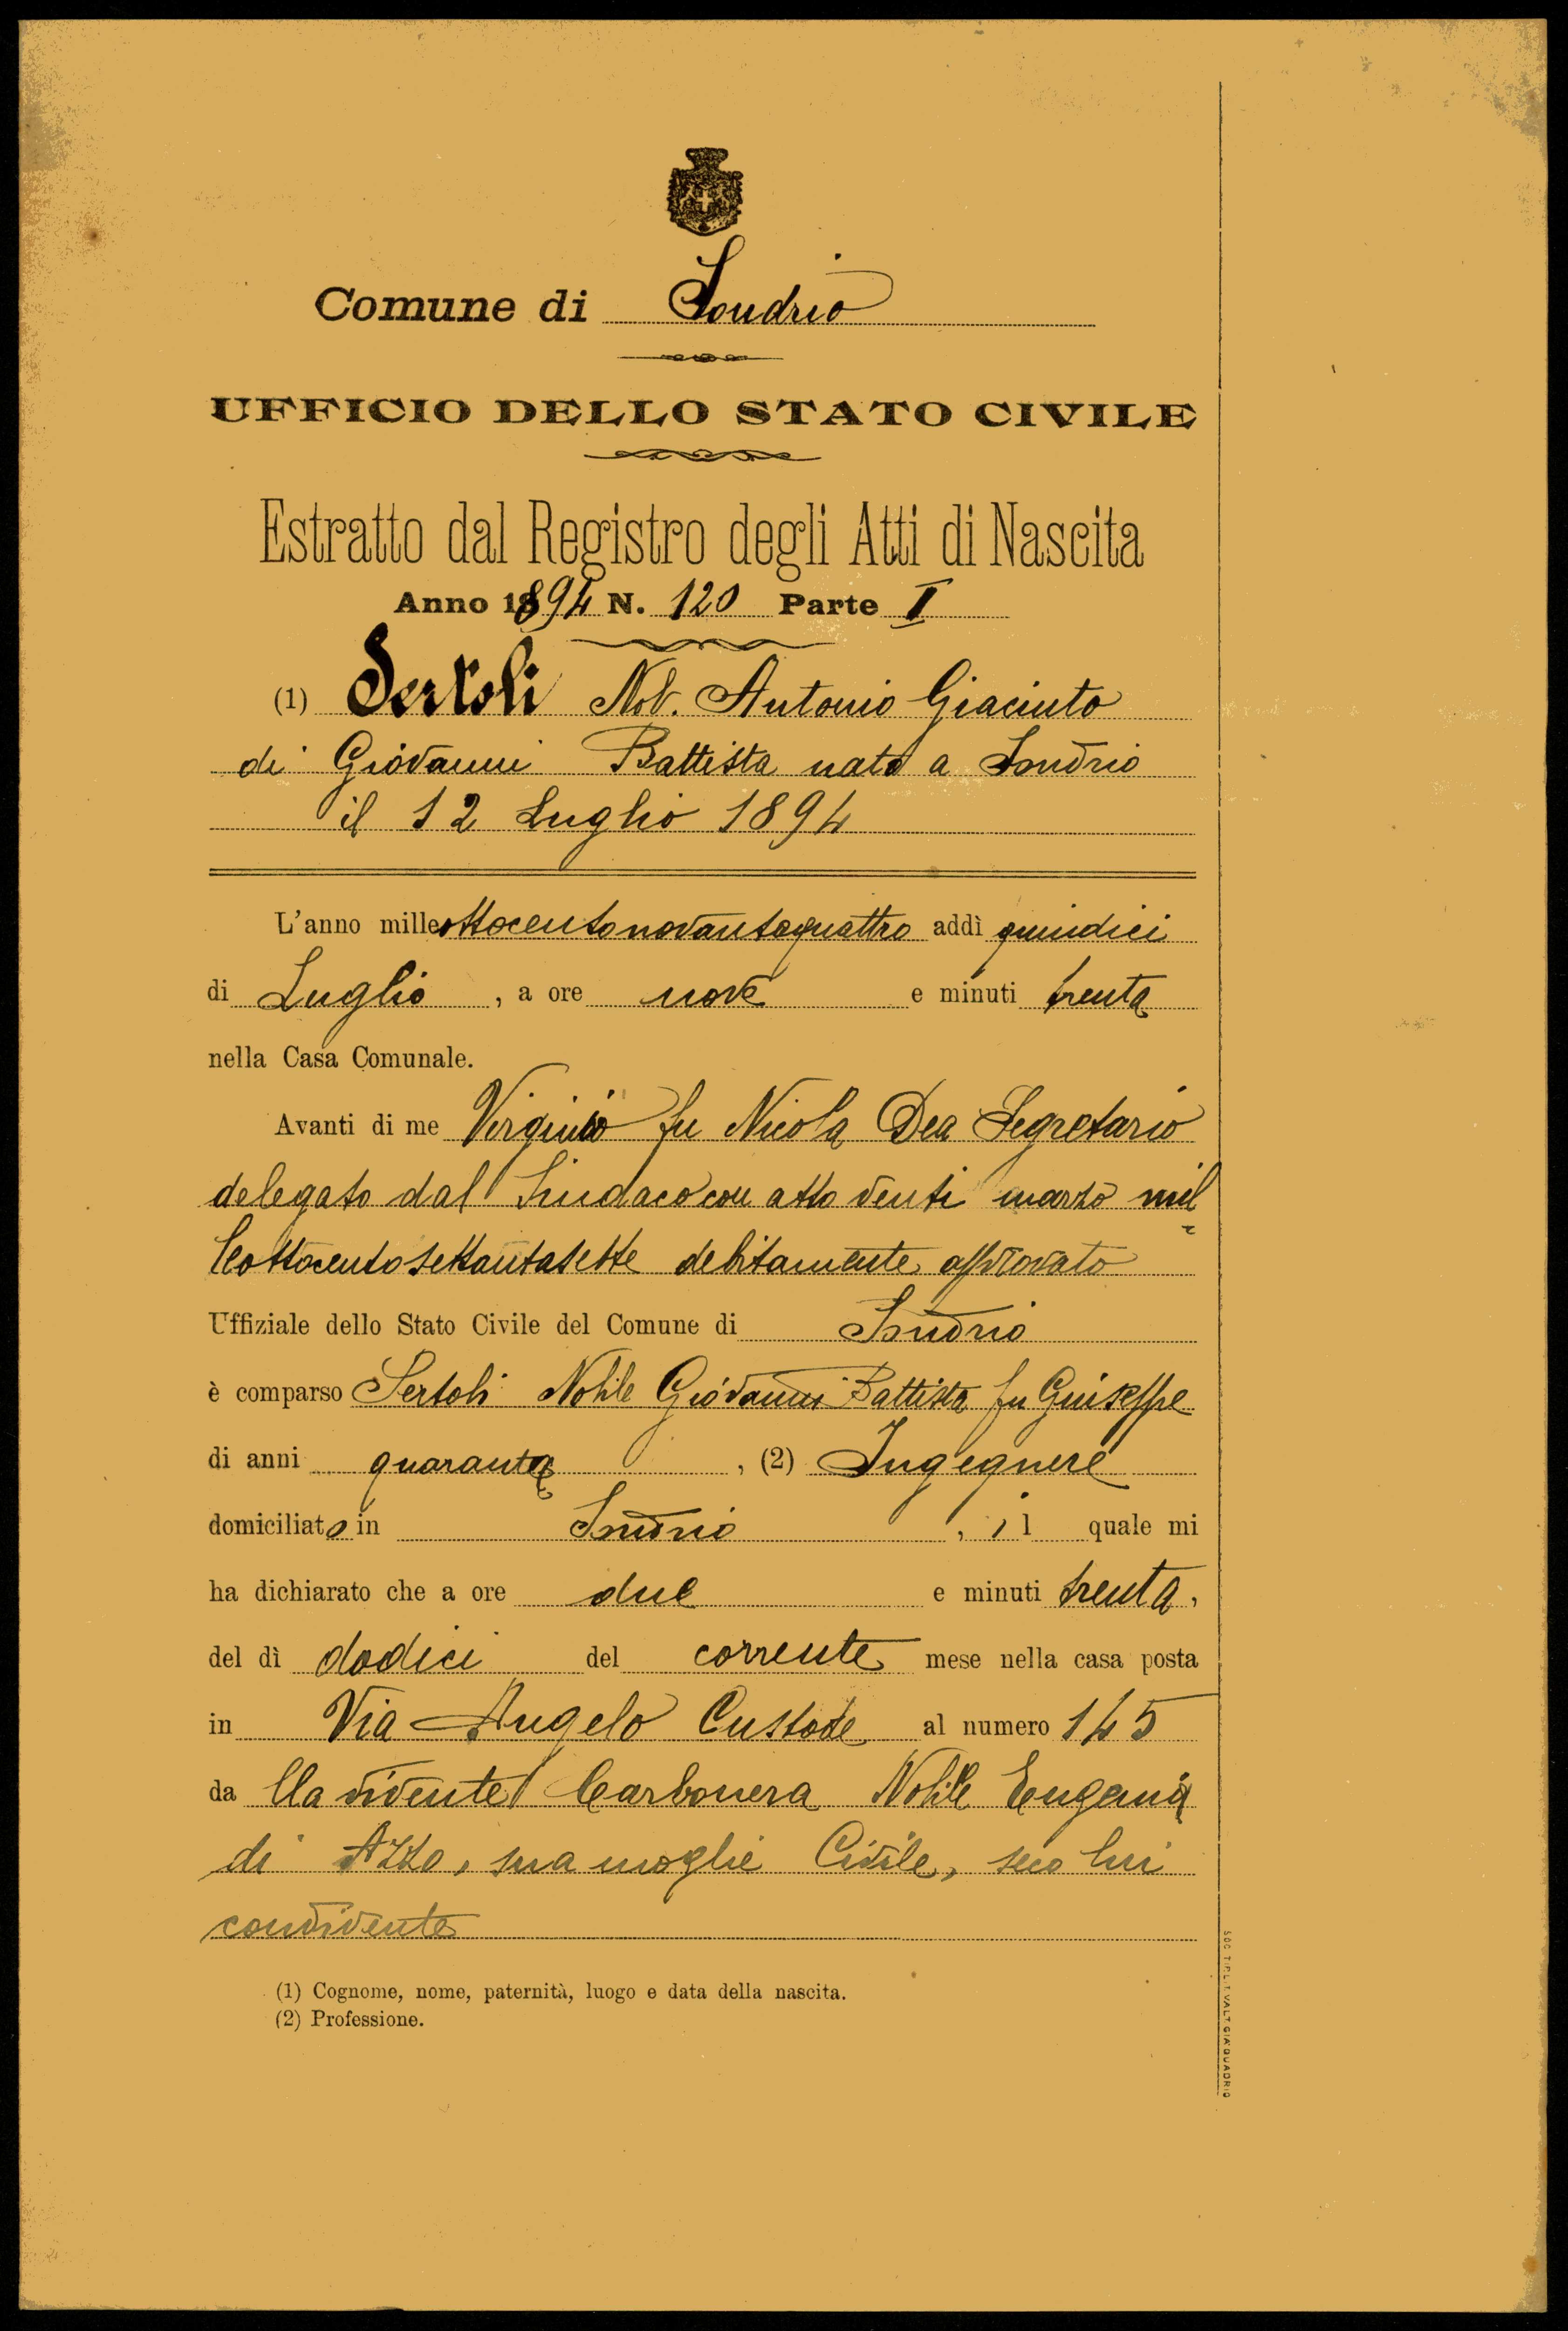 Comune di Sondrio
UFFICIO DELLO STATO CIVILE
Estratto dal Registro degli Atti di Nascita
Anno 1894 N. 120 Parte I
(1) Sertoli Nob. Antonio Giacinto
di Giovanni Battista nato a Sondrio
il 12 Luglio 1894
L'anno milleottocentonovantaquattro addì quindici
di Luglio, a ore nove e minuti trenta
nella Casa Comunale.
Avanti di me Virginio fu Nicola Dea Segretario
delegato dal Sindaco con atto venti marzo mil
leottocentosettantasette debitamente approvato
Uffiziale dello Stato Civile del Comune di Sondrio
è comparso Sertoli Nobile Giovanni Battista fu Giuseppe
di anni quaranta, (2) Ingegnere
domiciliato in Sondrio, il quale mi
ha dichiarato che a ore due e minuti trenta,
del dì dodici del corrente mese nella casa posta
in Via Angelo Custode al numero 145
da lla vivente Carbonera Nobile Eugenia
di Azzo, sua moglie Civile, seco lui
convivente
(1) Cognome, nome, paternità, luogo e data della nascita.
(2) Professione.
SOC. TIP. LIT. VALT. GIÀ QUADRIO